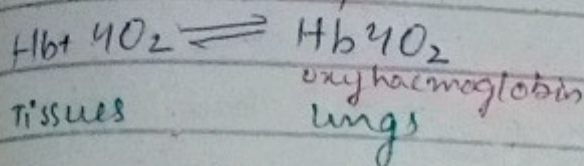 Hb+ 4O₂ ⇌ Hb4O₂
oxyhaemoglobin
Tissues lungs